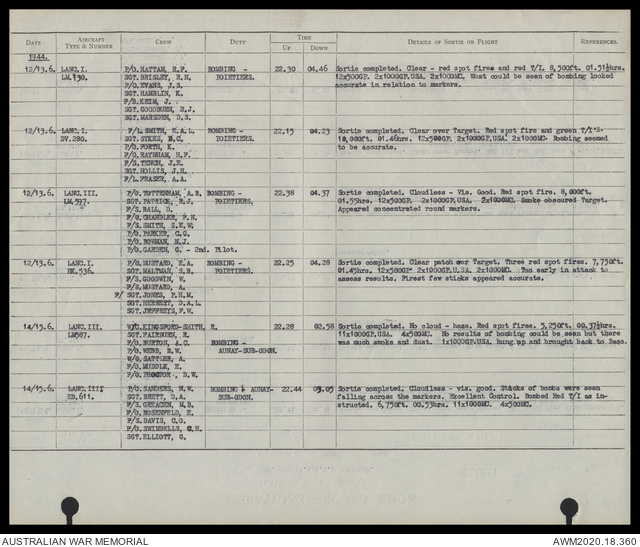 DATE AIRCRAFT TYPE & NUMBER CREW DUTY TIME UP DOWN DETAILS OF SORTIE OR FLIGHT REFERENCES.
1944.
12/13.6. LANC.I. P/O.HATTAM, H.F. BOMBING - 22.30 04.46 Sortie completed. Clear - red spot fires and red T/I. 8,500ft. 01.51½hrs.
LM.130. SGT.BRISLEY, R.N. POIETIERS. 12x500GP. 2x1000GP.USA. 2x1000MC. What could be seen of bombing looked
F/O.EVANS, J.S. accurate in relation to markers.
SGT.HAMBLIN, K.
F/S.KEIM, J.
SGT.GOODBURN, R.J.
SGT.MARSDEN, D.S.
12/13.6. LANC.I. F/L.SMITH, H.A.L. BOMBING - 22.15 04.23 Sortie completed. Clear over Target. Red spot fire and green T/I'S-
DV.280. SGT.SYKES, B.C. POIETIERS. 10,000ft. 01.46hrs. 12x500GP. 2x1000GP.USA. 2x1000MC. Bombing seemed
P/O.FORTH, K. to be accurate.
F/O.RAYNHAM, H.F.
F/S.TENCH, J.R.
SGT.HOLLIS, J.H.
F/L.FRASER, A.A.
12/13.6. LANC.III. P/O.TOTTENHAM, A.B. BOMBING - 22.38 04.37 Sortie completed. Cloudless - Vis. Good. Red spot fire. 8,000ft.
LM.597. SGT.PATRICK, R.J. POIETIERS. 01.55hrs. 12x500GP. 2x1000GP.USA. 2x1000MC. Smoke obscured Target.
F/S.BALL, D. Appeared concentrated round markers.
F/O.CHANDLER, P.N.
F/S.SMITH, S.E.W.
P/O.PARKER, C.G.
P/O.BOWMAN, N.J.
P/O.CARDEN, G. - 2nd. Pilot.
12/13.6. LANC.I. P/O.MUSTARD, E.A. BOMBING - 22.25 04.28 Sortie completed. Clear patch over Target. Three red spot fires. 7,750ft.
HK.536. SGT.MALTMAN, S.B. POIETIERS. 01.45hrs. 12x500GP 2x1000GP.U.SA. 2x1000MC. Too early in attack to
F/S.GOODWIN, W. assess results. First few sticks appeared accurate.
F/S.MUSTARD, A.
F/ SGT.JONES, P.H.M.
SGT.HERBETT, D.A.L.
SGT.JEFFREYS, F.W.
14/15.6. LANC.III. W/C.KINGSFORD-SMITH, R. 22.28 02.58 Sortie completed. No cloud - haze. Red spot fires. 5,250ft. 00.37½hrs.
LM587. SGT.FAIRBURN, R. 11x1000GP.USA. 4x500MC. No results of bombing could be seen but there
F/O.BURTON, A.C. BOMBING - was much smoke and dust. 1x1000GP.USA. hung up and brought back to Base.
F/O.WEBB, B.W. AUNAY-SUR-ODON.
W/O.SATTLER, A.
F/O.MUDDLE, E.
F/O.PROCTOR, D.W.
14/15.6. LANC.III P/O.SANDERS, N.W. BOMBING - AUNAY- 22.44 03.05 Sortie completed. Cloudless - vis. good. Sticks of bombs were seen
ED.611. SGT.BRETT, D.A. SUR-ODON. falling across the markers. Excellent Control. Bombed Red T/I as in-
F/S.GREACEN, M.B. structed. 6,750ft. 00.53hrs. 11x1000MC. 4x500MC.
F/O.ROSENFELD, E.
F/S.DAVIS, C.G.
F/O.SWINDELLS, C.H.
SGT.ELLIOTT, G.
AUSTRALIAN WAR MEMORIAL AWM2020.18.360